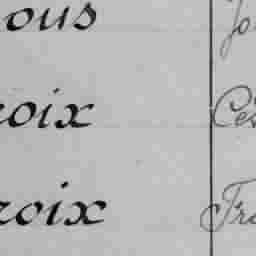 ous Jo
roix Cés
roix Fra